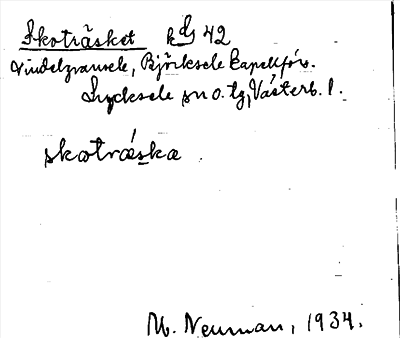 Skoträsket kd 42
Vindelgransele, Björksele kapellförs.
Lycksele sn o. tg, Västerb. l.
skotráska
M. Neuman, 1934.